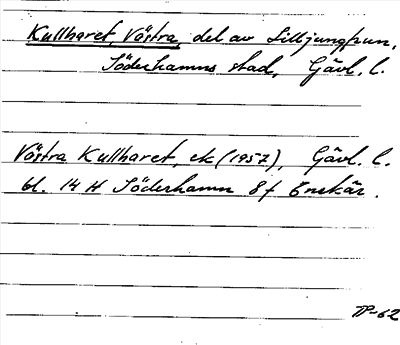 Kullharet, Västra, del av Lilljungfrun,
Söderhamns stad, Gävl. l.
Västra Kullharet, ek (1957), Gävl. l.
bl. 14 H Söderhamn 8 f Enskär.
TP-62